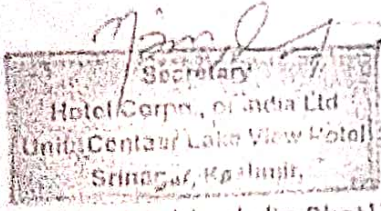 Secretary
Hotel Corpn., of India Ltd
Unit: Centaur Lake View Hotel
Srinagar, Kashmir.